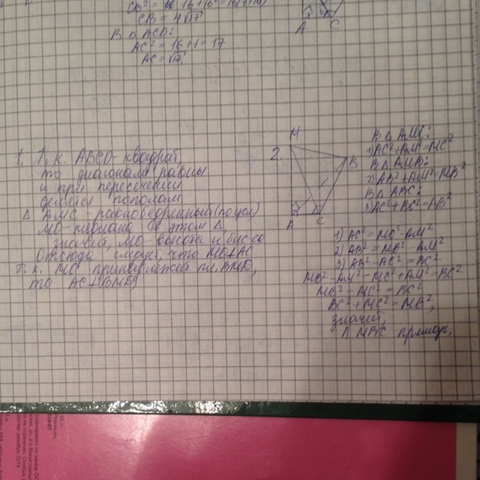 CB = 4√17
В Δ ACD:
AC² = 16+1 = 17
AC = √17
A C
1. Т.к. ABCD - квадрат,
то диагонали равны
и при пересечении
делятся пополам
Δ AMC - равнобедренный (по усл)
MO - медиана в этом Δ,
значит, MO - высота и бис-са
Отсюда следует, что MO⊥AC
Т.к. MO принадлежит пл. BMD,
то AC⊥BMD
2.
M
B
A C
В Δ AMC:
1) AC²+AM²=MC²
В Δ AMB:
2) AB²+AM²=MB²
В Δ ABC:
3) AC²+BC²=AB²
1) AC²=MC²-AM²
2) AB²=MB²-AM²
3) AB²-AC²=BC²
MB²-AM²-MC²+AM²=BC²
MB²-MC²=BC²
BC²+MC²=MB²,
значит,
Δ MBC прямоуг.